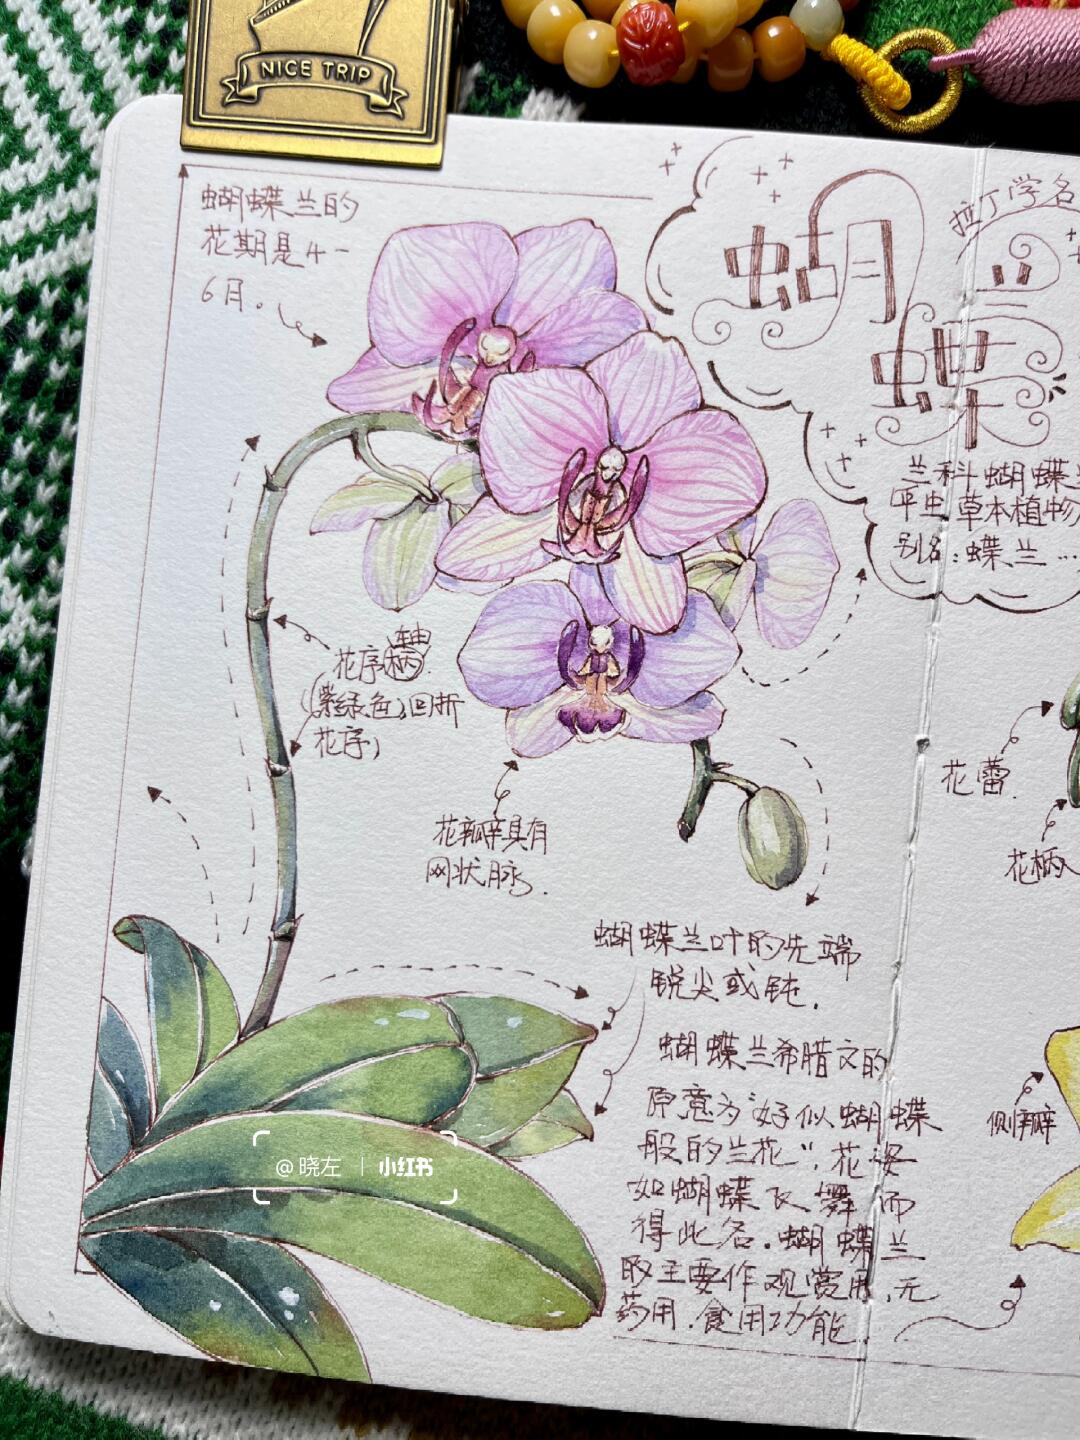 NICE TRIP
蝴蝶兰的
花期是4-
6月。
拉丁学名
蝴
蝶
兰
兰科蝴蝶兰
草本植物
别名:蝶兰...
花序轴
柄
(紫绿色)回折
花序)
花瓣具有
网状脉.
花蕾.
花柄
蝴蝶兰叶的先端
锐尖或钝.
蝴蝶兰希腊文的
原意为“好似蝴蝶
般的兰花”.花姿
如蝴蝶飞舞而
得此名.蝴蝶兰
的主要作观赏用,无
药用.食用功能.
侧瓣
@晓左 | 小红书